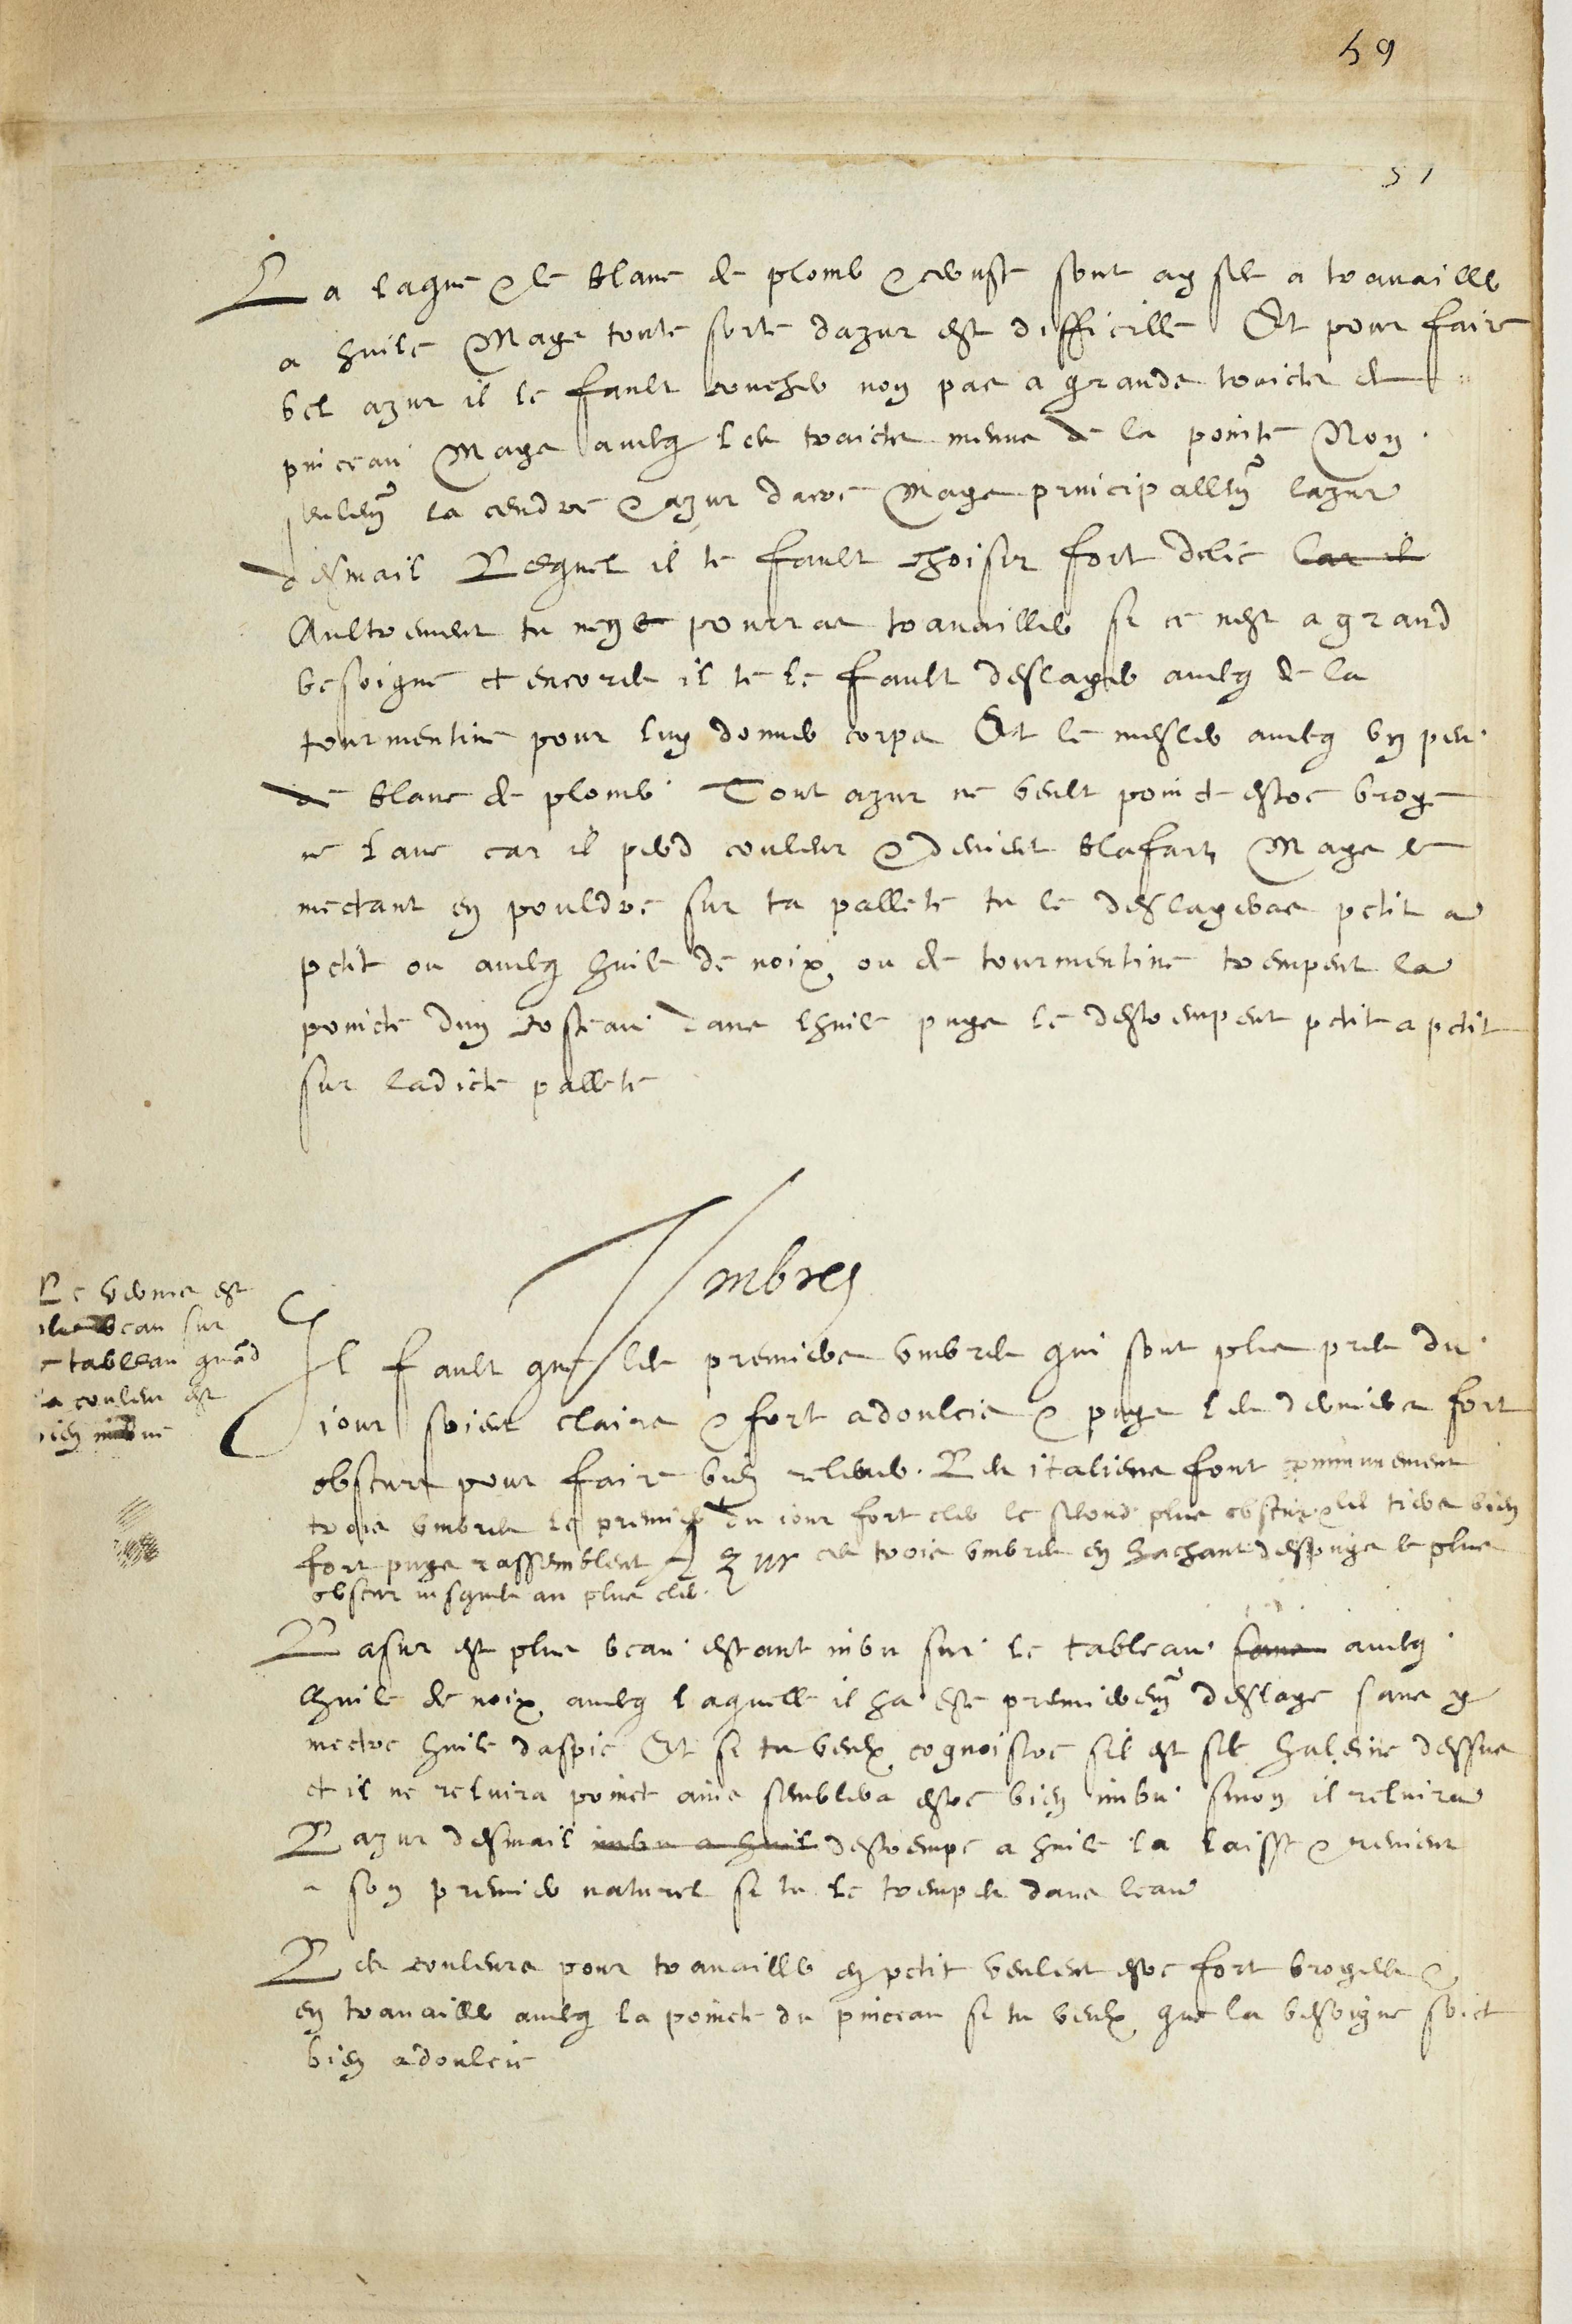 59
57
La laque & le blanc de plomb & ceruse sont aysés a travailler
a huile Mays toute sorte dazur est difficille Et pour faire
bel azur il le fault coucher non pas a grands traicts de
pinceau Mays avecq les traicts menus de la poincte Non
seulem la cendre & azur dacre Mays principallem lazur
desmail Lequel il te fault choisir fort delie Car il
Aultrement tu nen pourras travailler si ce nest a grand
besoigne et encores il te le fault deslayer avecq de la
tourmentine pour luy donner corps Et le mesler avecq un peu
de blanc de plomb Tout azur ne veult poinct estre broye
ne lave car il perd couleur & devient blafart Mays le
mectant en pouldre sur ta pallete tu le deslayeras petit a
petit ou avecq huile de noix ou de tourmentine trempent la
poincte dun costeau dans lhuile puys le destrempent petit a petit
sur ladicte pallete
Umbres
Le vernis est
beau sur
tableau quãd
la couleur est
bien imbue
Il fault que les premieres umbres qui sont plus pres du
jour soient claires & fort adoulcies & puys les dernieres fort
obscures pour faire bien relever. Les italiens font communement
trois umbres la premiere du jour fort clere le second plus obscur & les tiers bien
fort puys rassemblent ces trois umbres en hachant despuys le plus
obscur jusques au plus cler.
Lasur est plus beau estant imbu sur le tableau sans avecq
lhuile de noix avecq laquelle il ha este premierem deslaye sans y
mectre huile daspic Et si tu veulx cognoistre sil est sec haleine dessus
et il ne reluira poinct ains semblera estre bien imbu sinon il reluira
Lazur desmail imbu a huil destrempe a huile la laisse & revient
a son premier naturel si tu le trempes dans leau
Les couleurs pour travailler en petit veulent estre fort broyees &
en travailler avecq la poincte du pinceau si tu veulx que la besoigne soict
bien adoulcie